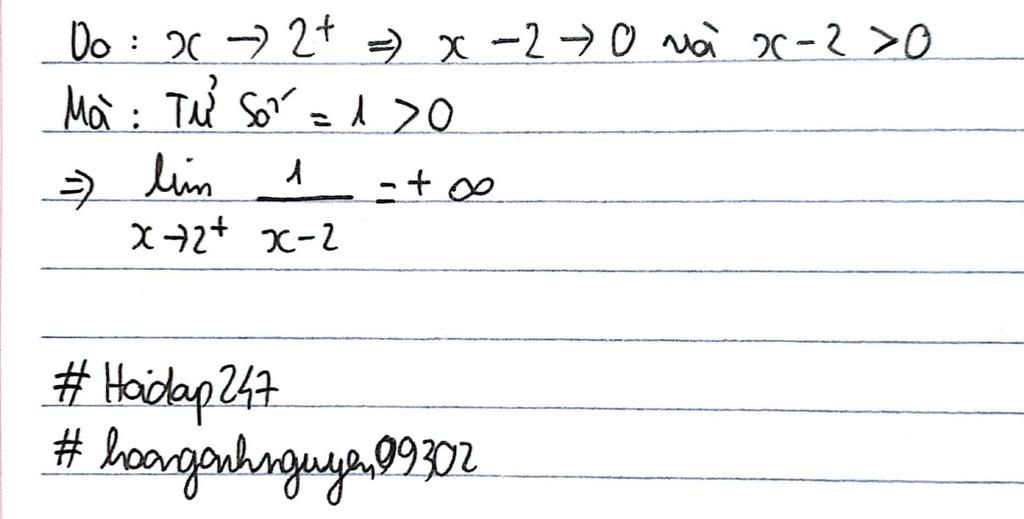 Do : x → 2⁺ ⇒ x - 2 → 0 và x - 2 > 0
Mà : Tử Số = 1 > 0
⇒ lim x→2⁺ 1/(x-2) = + ∞
# Hoidap247
# hoanganhnguyen09302